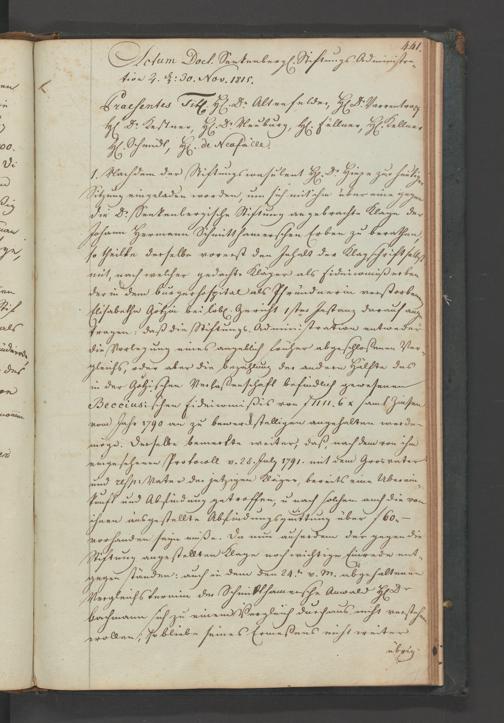 441.
Actum Doct. Senkenbergs. Stiftungs Administra-
tion d. d.: 30. Nov. 1815.
Praesentes Titl. H. Dr. Altenfelder, H. Dr. Varrentrapp
H. Dr. Kestner, H. Dr. Neuburg, H. Füllner, H. Kellner
H. Schmidt, H. de Neufville.
1. Nachdem der Stiftungs Consulent H. Dr. Hiepe zur heutigen
Sitzung eingeladen worden, um sich mit ihm über eine gegen
die Dr. Senkenbergische Stiftung angebrachte Klage der
Johann Hermann Schmidthamerschen Erben zu berathen,
so theilte derselbe vorerst den Inhalt der Klagschrift selbst
mit, nach welcher gedachte Kläger als Fideicommißerben
der in dem Bürgerhospital als Pfründnerin verstorbenen
Elisabetha bei löbl. Gericht 1ster Instanz darauf ange-
tragen: daß die Stiftungs Administration entweder
die Vorlegung eines angeblich früher abgeschloßnen Ver-
gleichs, oder aber die bezahlung der andern Hälfte des
in der Verlassenschaft befindlich gewesenen
Fideicommißes von f 1111. 6 x samt Zinsen
vom Jahr 1790 an zu bewerkstelligen angehalten werden
möge. Derselbe bemerkte weiter, daß nachdem von ihm
eingesehenen Protocoll v. 28. July 1791. mit dem Grosvater
und resp. Vater der jetzigen Kläger, bereits eine Ueberein-
kunft und Abfindung getroffen, u. nach solchem auch die von
ihnen ausgestellte Abfindungsquittung über f 60.
vorhanden seyn müße. Da nun außerdem der gegen die
Stiftung angestellten Klage noch wichtige Einrede ent-
gegen stünden: auch in dem den 24ten v. M. abgehaltenen
Vergleichstermin der Schmidthamersche Anwald H. Dr.
Bachmann sich zu einem Vergleich durchaus nicht verstehen
wollen, so bliebe seines Ermeßens nicht weiter
übrig